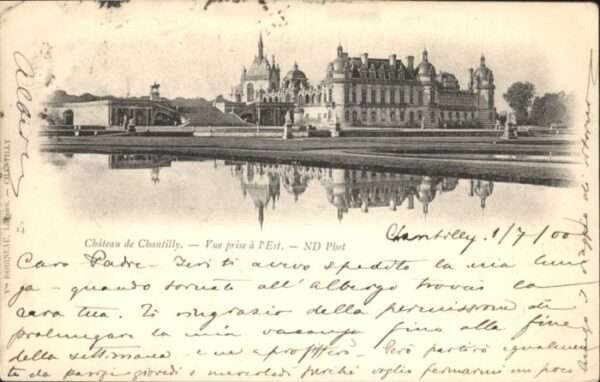 Château de Chantilly. — Vue prise à l'Est. — ND Phot
Chantilly, 1/7/00
Caro Padre - Ieri ti avevo spedito la mia lun
ga - quando tornato all'albergo trovai la
cara tua. Ti ringrazio della permissione di
prolungare la mia vacanza fino alla fine
della settimana e ne profitterò - Però partirò egualmente
da Parigi giovedì o mercoledì perché voglio fermarmi un poco
Vve, CHANTILLY